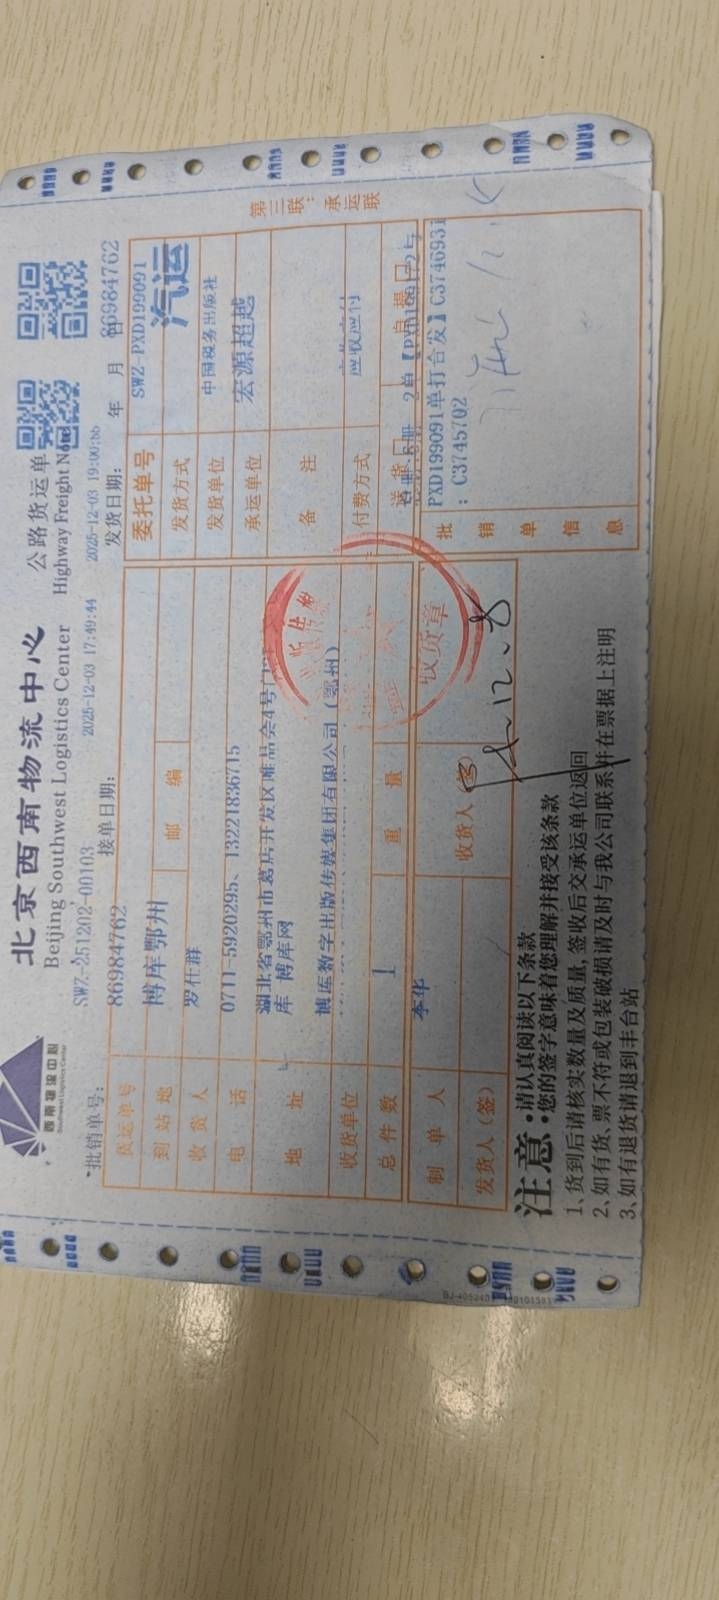 西南物流中心
Southwest Logistics Center
北京西南物流中心
Beijing Southwest Logistics Center
公路货运单
Highway Freight Note
SWZ-251202-00103
2025-12-03 17:49:44
2025-12-03 19:00:
批销单号：
接单日期：
发货日期：
年 月 日
86984762
货运单号
86984762
委托单号
SWZ-PXD199091
到站地
博库鄂州
邮编
发货方式
汽运
收货人
罗仕群
发货单位
中国税务出版社
电话
0711-5920295、13221836715
承运单位
宏源超越
地址
湖北省鄂州市葛店开发区唯品会4号门
库 博库网
备注
收货单位
博库数字出版传媒集团有限公司（鄂州）
付费方式
应收应付
总件数
1
重量
送货
自提
制单人
李华
收货人（签）
发货人（签）
批销单信息
2单
PXD199091单打合发】C3746931
：C3745702
收货章
12.8
第三联：承运联
注意
·请认真阅读以下条款
·您的签字意味着您理解并接受该条款
1、货到后请核实数量及质量,签收后交承运单位返回
2、如有货、票不符或包装破损请及时与我公司联系并在票据上注明
3、如有退货请退到丰台站